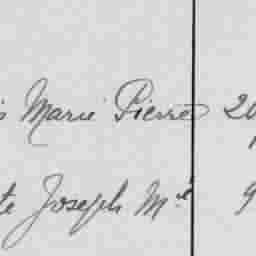 Marie Pierre 20
te Joseph Mel 9